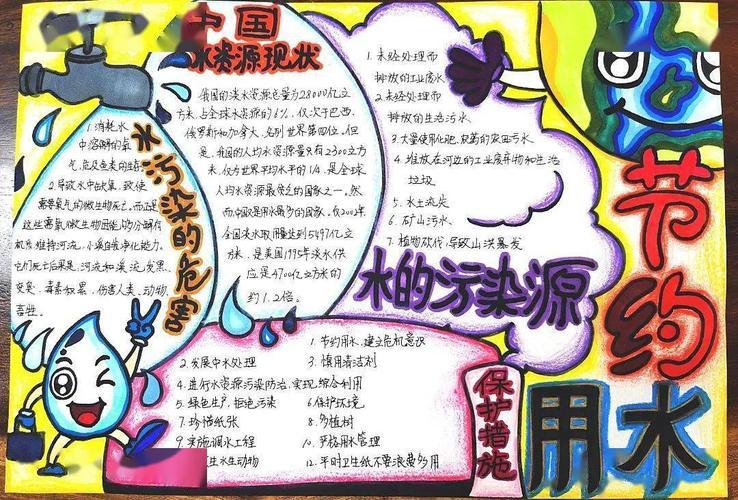 中国
水资源现状
我国的淡水资源总量为28000亿立
方米，占全球水资源的6%，仅次于巴西、
俄罗斯和加拿大，名列世界第四位，但
是，我国的人均水资源量只有2300立方
米，仅为世界平均水平的1/4，是全球
人均水资源最贫乏的国家之一。然
而，中国又是用水最多的国家，仅2002年
全国淡水取用量达到5497亿立
方米，是美国1995年淡水供
应量4700亿立方米的
约1.2倍。
水污染的危害
1.消耗水
中溶解的氧
气，危及鱼类的生存
2.导致水中缺氧，致使
需要氧气的微生物死亡。而正是
这些需氧微生物因能够分解有
机质，维持河流，小溪自我净化能力。
它们死亡后果是：河流和溪流发黑，
变臭，毒素积累，伤害人类、动物、
畜牲。
1.未经处理而
排放的工业废水
2.未经处理而
排放的生活污水
3.大量使用化肥，农药的农田污水
4.堆放在河边的工业废弃物和生活
垃圾
5.水土流失
6.矿山污水
7.植物砍伐，导致山洪暴发
水的污染源
节约
用水
保护措施
1.节约用水，建立危机意识
2.发展中水处理
3.慎用清洁剂
4.进行水资源污染防治，实现综合利用
5.绿色生产，拒绝污染
6.保护环境
7.珍惜纸张
8.多植树
9.实施调水工程
10.严格用水管理
生水生动物
12.平时卫生纸不要浪费多用